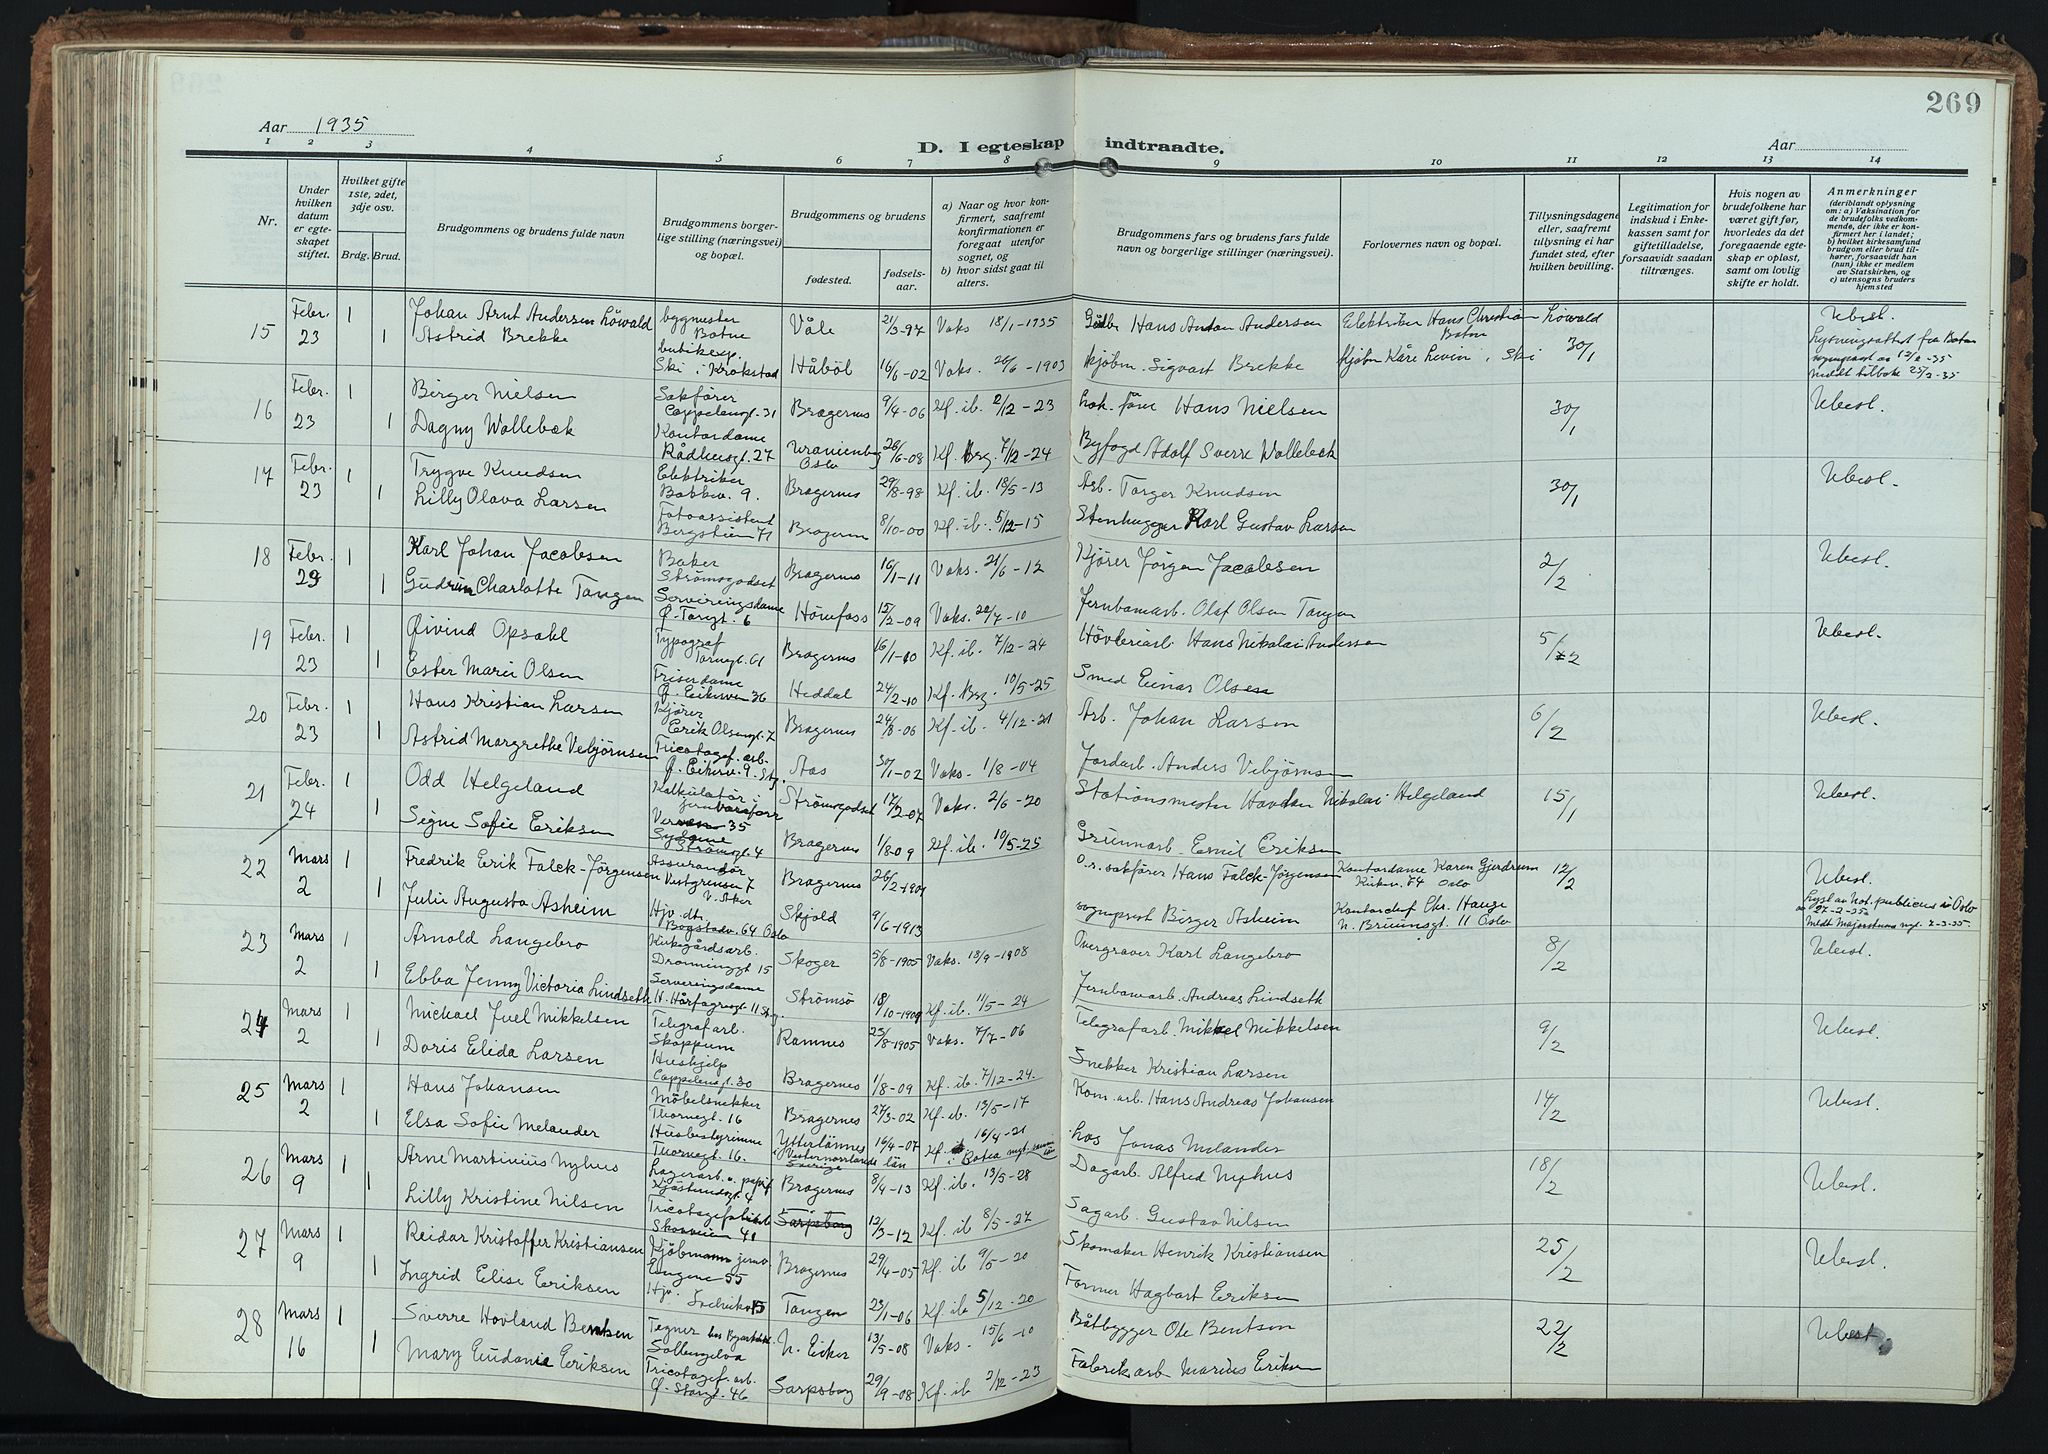 269
Aar 1935
D. I egteskap indtraadte.
Aar
1 2 3 4 5 6 7 8 9 10 11 12 13 14
Nr.
Under hvilken datum er egteskapet stiftet.
Hvilket gifte 1ste, 2det, 3dje osv.
Brdg. Brud.
Brudgommens og brudens fulde navn
Brudgommens borgerlige stilling (næringsvei) og bopæl.
Brudgommens og brudens
fødested.
fødselsaar.
a) Naar og hvor konfirmert, saafremt konfirmationen er foregaat utenfor sognet, og
b) hvor sidst gaat til alters.
Brudgommens fars og brudens fars fulde navn og borgerlige stillinger (næringsvei).
Forlovernes navn og bopæl.
Tillysningsdagene eller, saafremt tillysning ei har fundet sted, efter hvilken bevilling.
Legitimation for indskud i Enkekassen samt for giftetilladelse, forsaavidt saadan tiltrænges.
Hvis nogen av brudefolkene har været gift før, hvorledes da det foregaaende egteskap er opløst, samt om lovlig skifte er holdt.
Anmerkninger (deriblandt oplysning om: a) Vaksination for de brudefolks vedkommende, der ikke er konfirmert her i landet; b) hvilket kirkesamfund brudgom eller brud tilhører, forsaavidt han (hun) ikke er medlem av Statskirken, og c) utensogns bruders hjemsted
15 Febr. 23 1 Johan Arnt Andersen Löwald bygmester Botne Våle 21/3-97 Vaks 18/1-1935 Hans Anton Andersen Elektriker Hans Christian Löwald Botne 30/1 Ubesl.
1 Astrid Brekke butikexp. Ski i Kråkstad Håböl 16/6-02 Vaks. 26/6-1903 kjøbm. Sigvart Brekke Kjøbm Kåre Levin, Ski Lysningsattest fra Botne sogneprest av 12/2-35 meldt tilbake 25/2-35
16 Febr. 23 1 Birger Nielsen Sakfører Cappelensgt. 31 Bragernes 9/4-06 Kf. ib. 2/12-23 Hans Nielsen 30/1 Ubesl.
1 Dagny Wollebæk Kontordame Rådhusgt. 27 Uranienborg Oslo 26/6-08 Kf. Brg. 7/12-24 Byfogd Adolf Sverre Wollebæk
17 Febr. 23 1 Trygve Knudsen Elektriker Bakkev. 9. Bragernes 29/8-98 Kf. ib. 18/5-13 Arb. Torger Knudsen 30/1 Ubesl.
1 Lilly Olava Larsen Fotoassistent Bergstien 71 Bragernes 8/10-00 Kf. ib. 5/12-15 Stenhugger Karl Gustav Larsen
18 Febr. 23 1 Karl Johan Jacobsen Baker Strømsgodset Bragernes 16/1-11 Vaks. 21/6-12 Kjører Jörgen Jacobsen 2/2 Ubesl.
1 Gudrun Charlotte Tangen Serveringsdame Ø. Torggt. 6 Hønefoss 15/2-09 Vaks. 20/7-10 Jernbanearb. Olaf Olsen Tangen
19 Febr. 23 1 Øivind Opsahl Typograf Tornegt. 61 Bragernes 16/1-10 Kf. ib. 7/12-24 Høvleriarb. Hans Nikolai Andersen 5/2 Ubesl.
1 Ester Marie Olsen Friserdame Ø. Eikervei 36 Heddal 24/2-10 Kf. Brg. 10/5-25 Smed Einar Olsen
20 Febr. 23 1 Hans Kristian Larsen Kjører Erik Olsensgt. 7 Bragernes 24/8-06 Kf. ib. 4/12-21 Arb. Johan Larsen 6/2 Ubesl.
1 Astrid Margrethe Vebjørnsen Tricotagef. arb. Ø. Eikerv. 9. Stg. Aas 30/1-02 Vaks. 1/8-04 Jordarb. Anders Vebjørnsen
21 Febr. 24 1 Odd Helgeland Kalkulatør i jernvareforr Verven 35 Strömsgodset 17/2-07 Vaks. 2/6-20 Stationsmester Nikolai Helgeland 15/1 Ubesl.
1 Signe Sofie Eriksen Sydame Strömsgt. 4 Bragernes 1/8-09 Kf. ib. 10/5-25 Emil Eriksen
22 Mars 2 1 Fredrik Erik Falck-Jörgensen Assurandør Vestgrensen 7 V. Aker Bragernes 26/2-1901 O.r. sakfører Hans Falck-Jørgensen Kontordame Karen Gjerdrum Kirkev. 74 Oslo 12/2 Ubesl.
1 Julie Augusta Asheim Hjv. dtr. Bogstadv. 64 Oslo Skjold 9/6-1913 sogneprest Birger Asheim Kontorchef Chr. Hauge N. Bruunsgt. 11 Oslo Lyst av Not. publicus i Oslo 27-2-35. Meldt Majorstuens mgt. 2-3-35.
23 Mars 2 1 Arnold Langebro Kirkegårdsarb. Dronninggt 15 Skoger 5/8-1905 Vaks. 13/9-1908 Overgraver Karl Langebro 8/2 Ubesl.
1 Ebba Jenny Victoria Lindseth Serveringsdame H. Hårfagresgt. 11 Stg. Strömsø 18/10-1909 Kf. ib. 11/5-24 Jernbanearb. Andreas Lindseth
24 Mars 2 1 Michael Juel Mikkelsen Telegrafarb. Skoppum Ramnes 25/8-1905 Vaks. 7/7-06 Telegrafarb. Mikkel Mikkelsen 9/2 Ubesl.
1 Doris Elida Larsen Hushjelp Cappelensgt. 30 Bragernes 1/8-09 Kf. ib. 7/12-24. Snekker Kristian Larsen
25 Mars 2 1 Hans Johansen Möbelsnekker Thornegt. 16 Bragernes 27/3-02 Kf. ib. 13/5-17 Kom. arb. Hans Andreas Johansen 14/2 Ubesl.
1 Elsa Sofie Melander Husbestyrinne Thornegt. 16. Ytterlännes i Vesternorrlands län Sverige 16/4-07 Kf. 16/4-21 i Botea Los Jonas Melander
26 Mars 9 1 Arne Martinius Nyhus Lagerarb. Bragernes 8/4-13 Kf. ib. 13/5-28 Dagarb. Alfred Nyhus 18/2 Ubesl.
1 Lilly Kristine Nilsen Tricotagefabrikk Skoveien 41 Sarpsborg 12/3-12 Kf. ib 8/5-27 Sagarb. Gustav Nilsen
27 Mars 9 1 Reidar Kristoffer Kristiansen Kjöbmann Engene 55 Bragernes 29/4-05 Kf. ib 9/5-20 Skomaker Henrik Kristiansen 25/2 Ubesl.
1 Ingrid Elise Eriksen Hjv. Tangen 23/1-06 Kf. ib 5/12-20 Former Hagbart Eriksen
28 Mars 16 1 Sverre Hovland Bentsen Tegner Sollengelva N. Eiker 13/5-08 Vaks. 15/6-10 Båtbygger Ole Bentsen 22/2 Ubesl.
1 Mary Eudania Eriksen Tricotagef. arb. Ø. Storgt. 46 Sarpsborg 29/9-08 Kf. ib 2/12-23 Fabrikarb Marius Eriksen